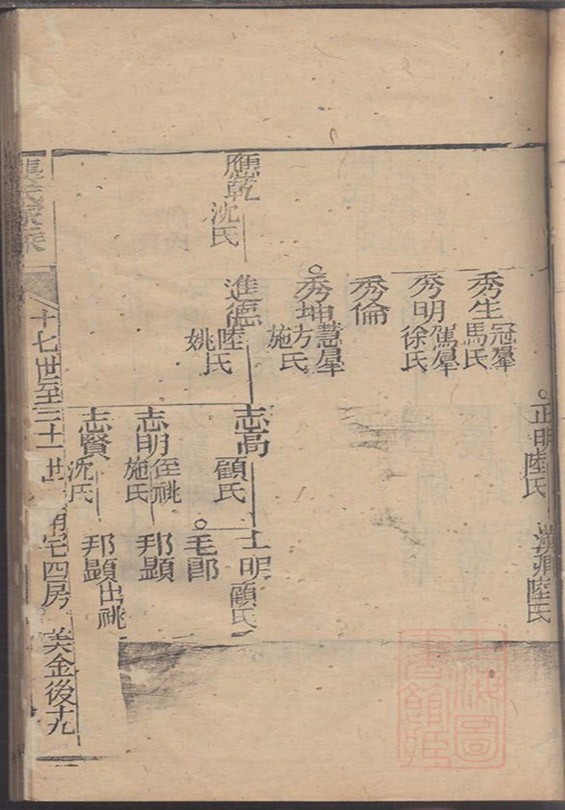 正明陸氏
漢卿陸氏
秀生冠羣
馬氏
秀明駕羣
徐氏
秀倫
秀坤慧羣
方氏
施氏
應乾沈氏
進德陸氏
姚氏
志高顧氏
士明顧氏
毛郎
志明侄祧
施氏
邦顯
志賢沈氏
邦顯出祧
十七世至三十一世
宅四房
美金後十九